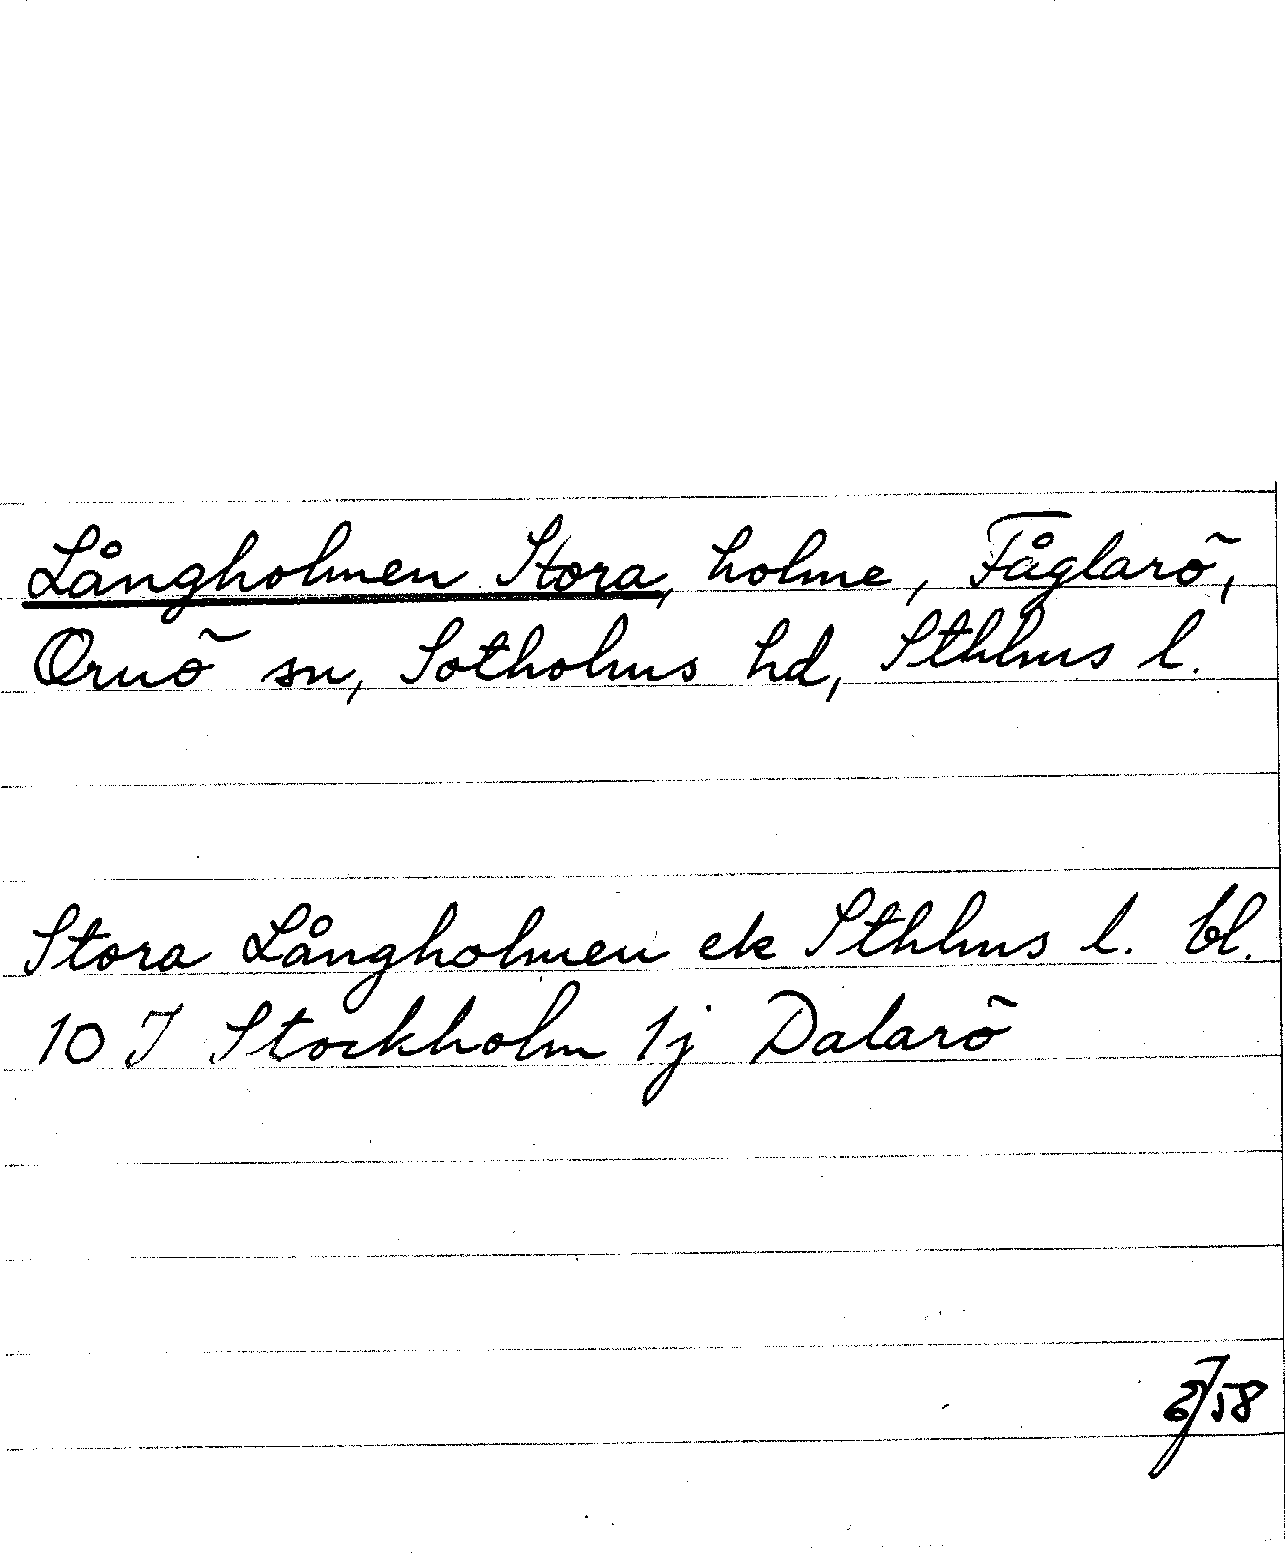 Långholmen Stora, holme, Fåglarö,
Ornö sn, Sotholms hd, Sthlms l.
Stora Långholmen ek Sthlms l. bl.
10 J Stockholm 1j Dalarö